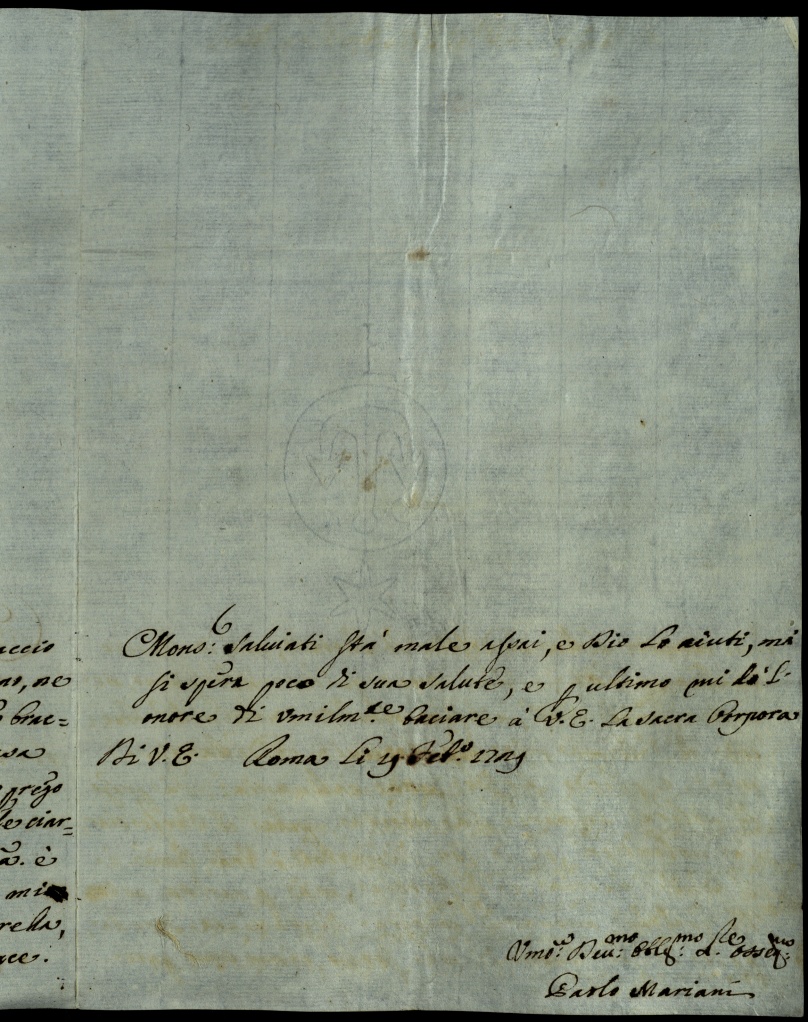 accio
no, ne
brac=
sa
prezo
le ciar=
è
mi
rella,
ace.
Mons: Saluiati stà male assai, e Dio Lo aiuti, mà
si spera poco di sua salute, e p ultimo mi dò l'
onore di vmilm.te baciare à V.E. La sacra Porpora
Di V.E. Roma Li 19 1709
Vmo: Deu:mo Obblg:mo osseq:mo
Paolo Mariani